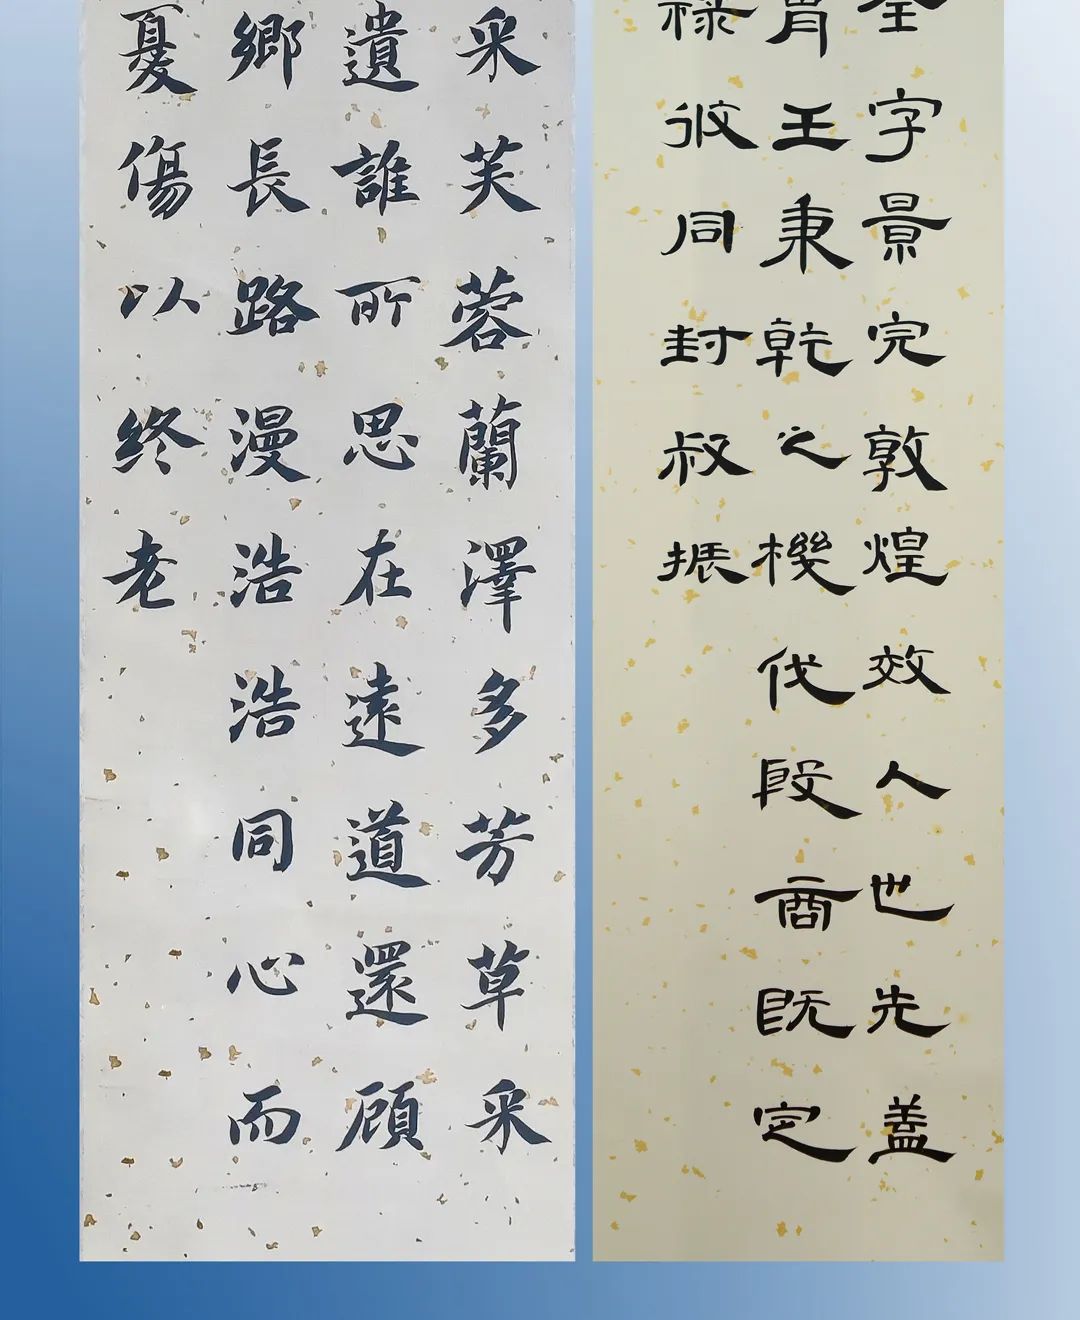 采芙蓉蘭澤多芳草采
遺誰所思在遠道還顧
鄉長路漫浩浩同心而
憂傷以終老
全字景完敦煌效人也先蓋
胄王秉乾之機伐殷商既定
祿攸同封叔振